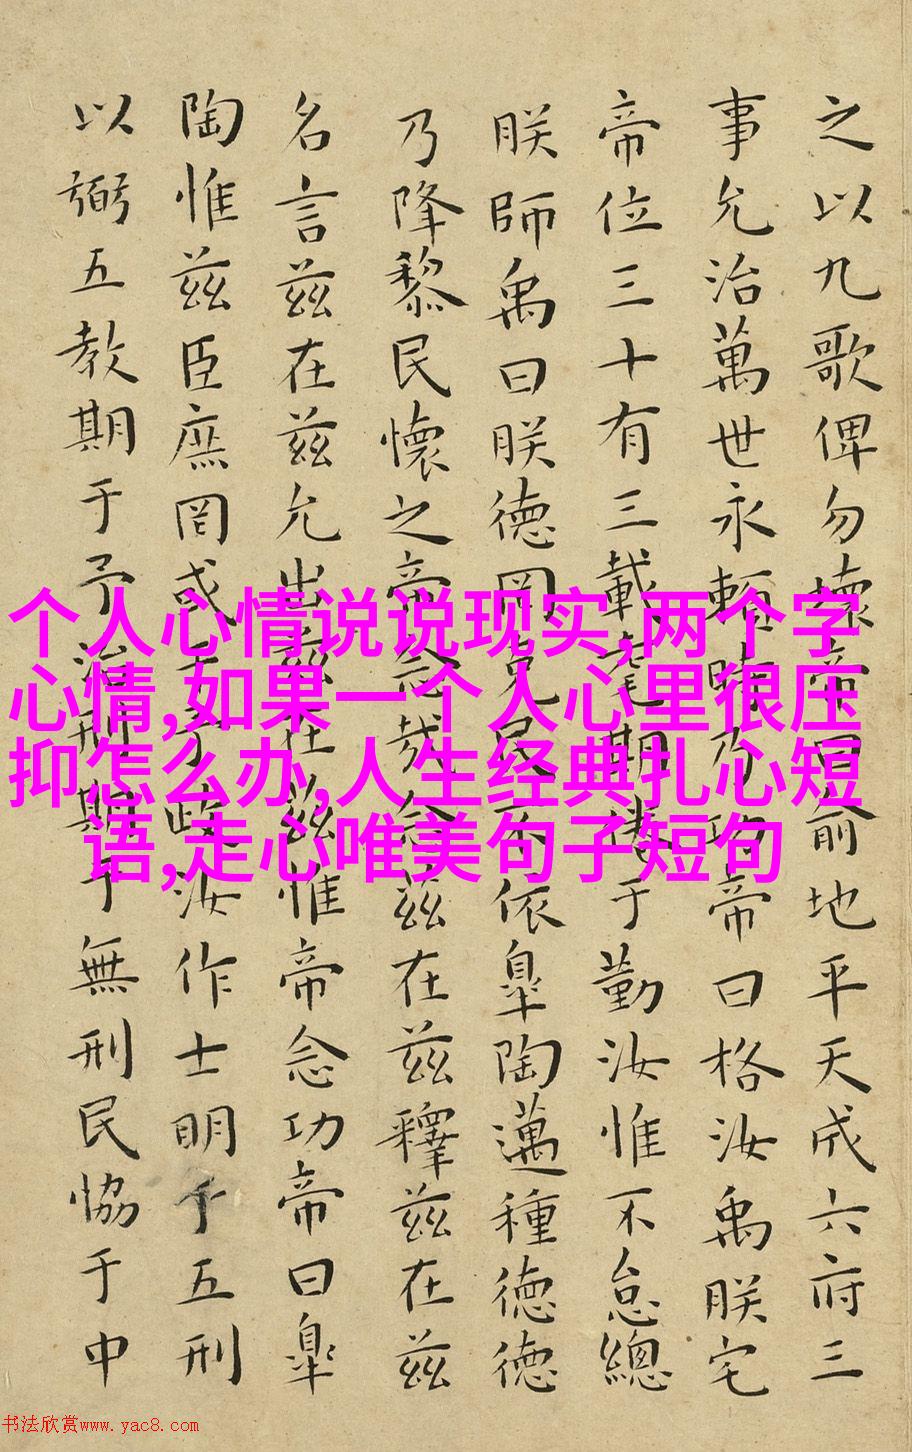 之以九歌俾勿壞帝曰俞地平天成六府三
事允治萬世永賴時乃功帝曰格汝禹朕宅
帝位三十有三載耄期倦于勤汝惟不怠總
朕師禹曰朕德罔克民不依皐陶邁種德德
乃降黎民懷之帝念哉念茲在茲釋茲在茲
名言茲在茲允出茲在茲惟帝念功帝曰皐
陶惟茲臣庶罔或干予政汝作士明于五刑
以弼五教期于予治刑期于無刑民協于中
个人心情说说现实,两个字
心情,如果一个人心里很压
抑怎么办,人生经典扎心短
语,走心唯美句子短句
书法欣赏www.yac8.com